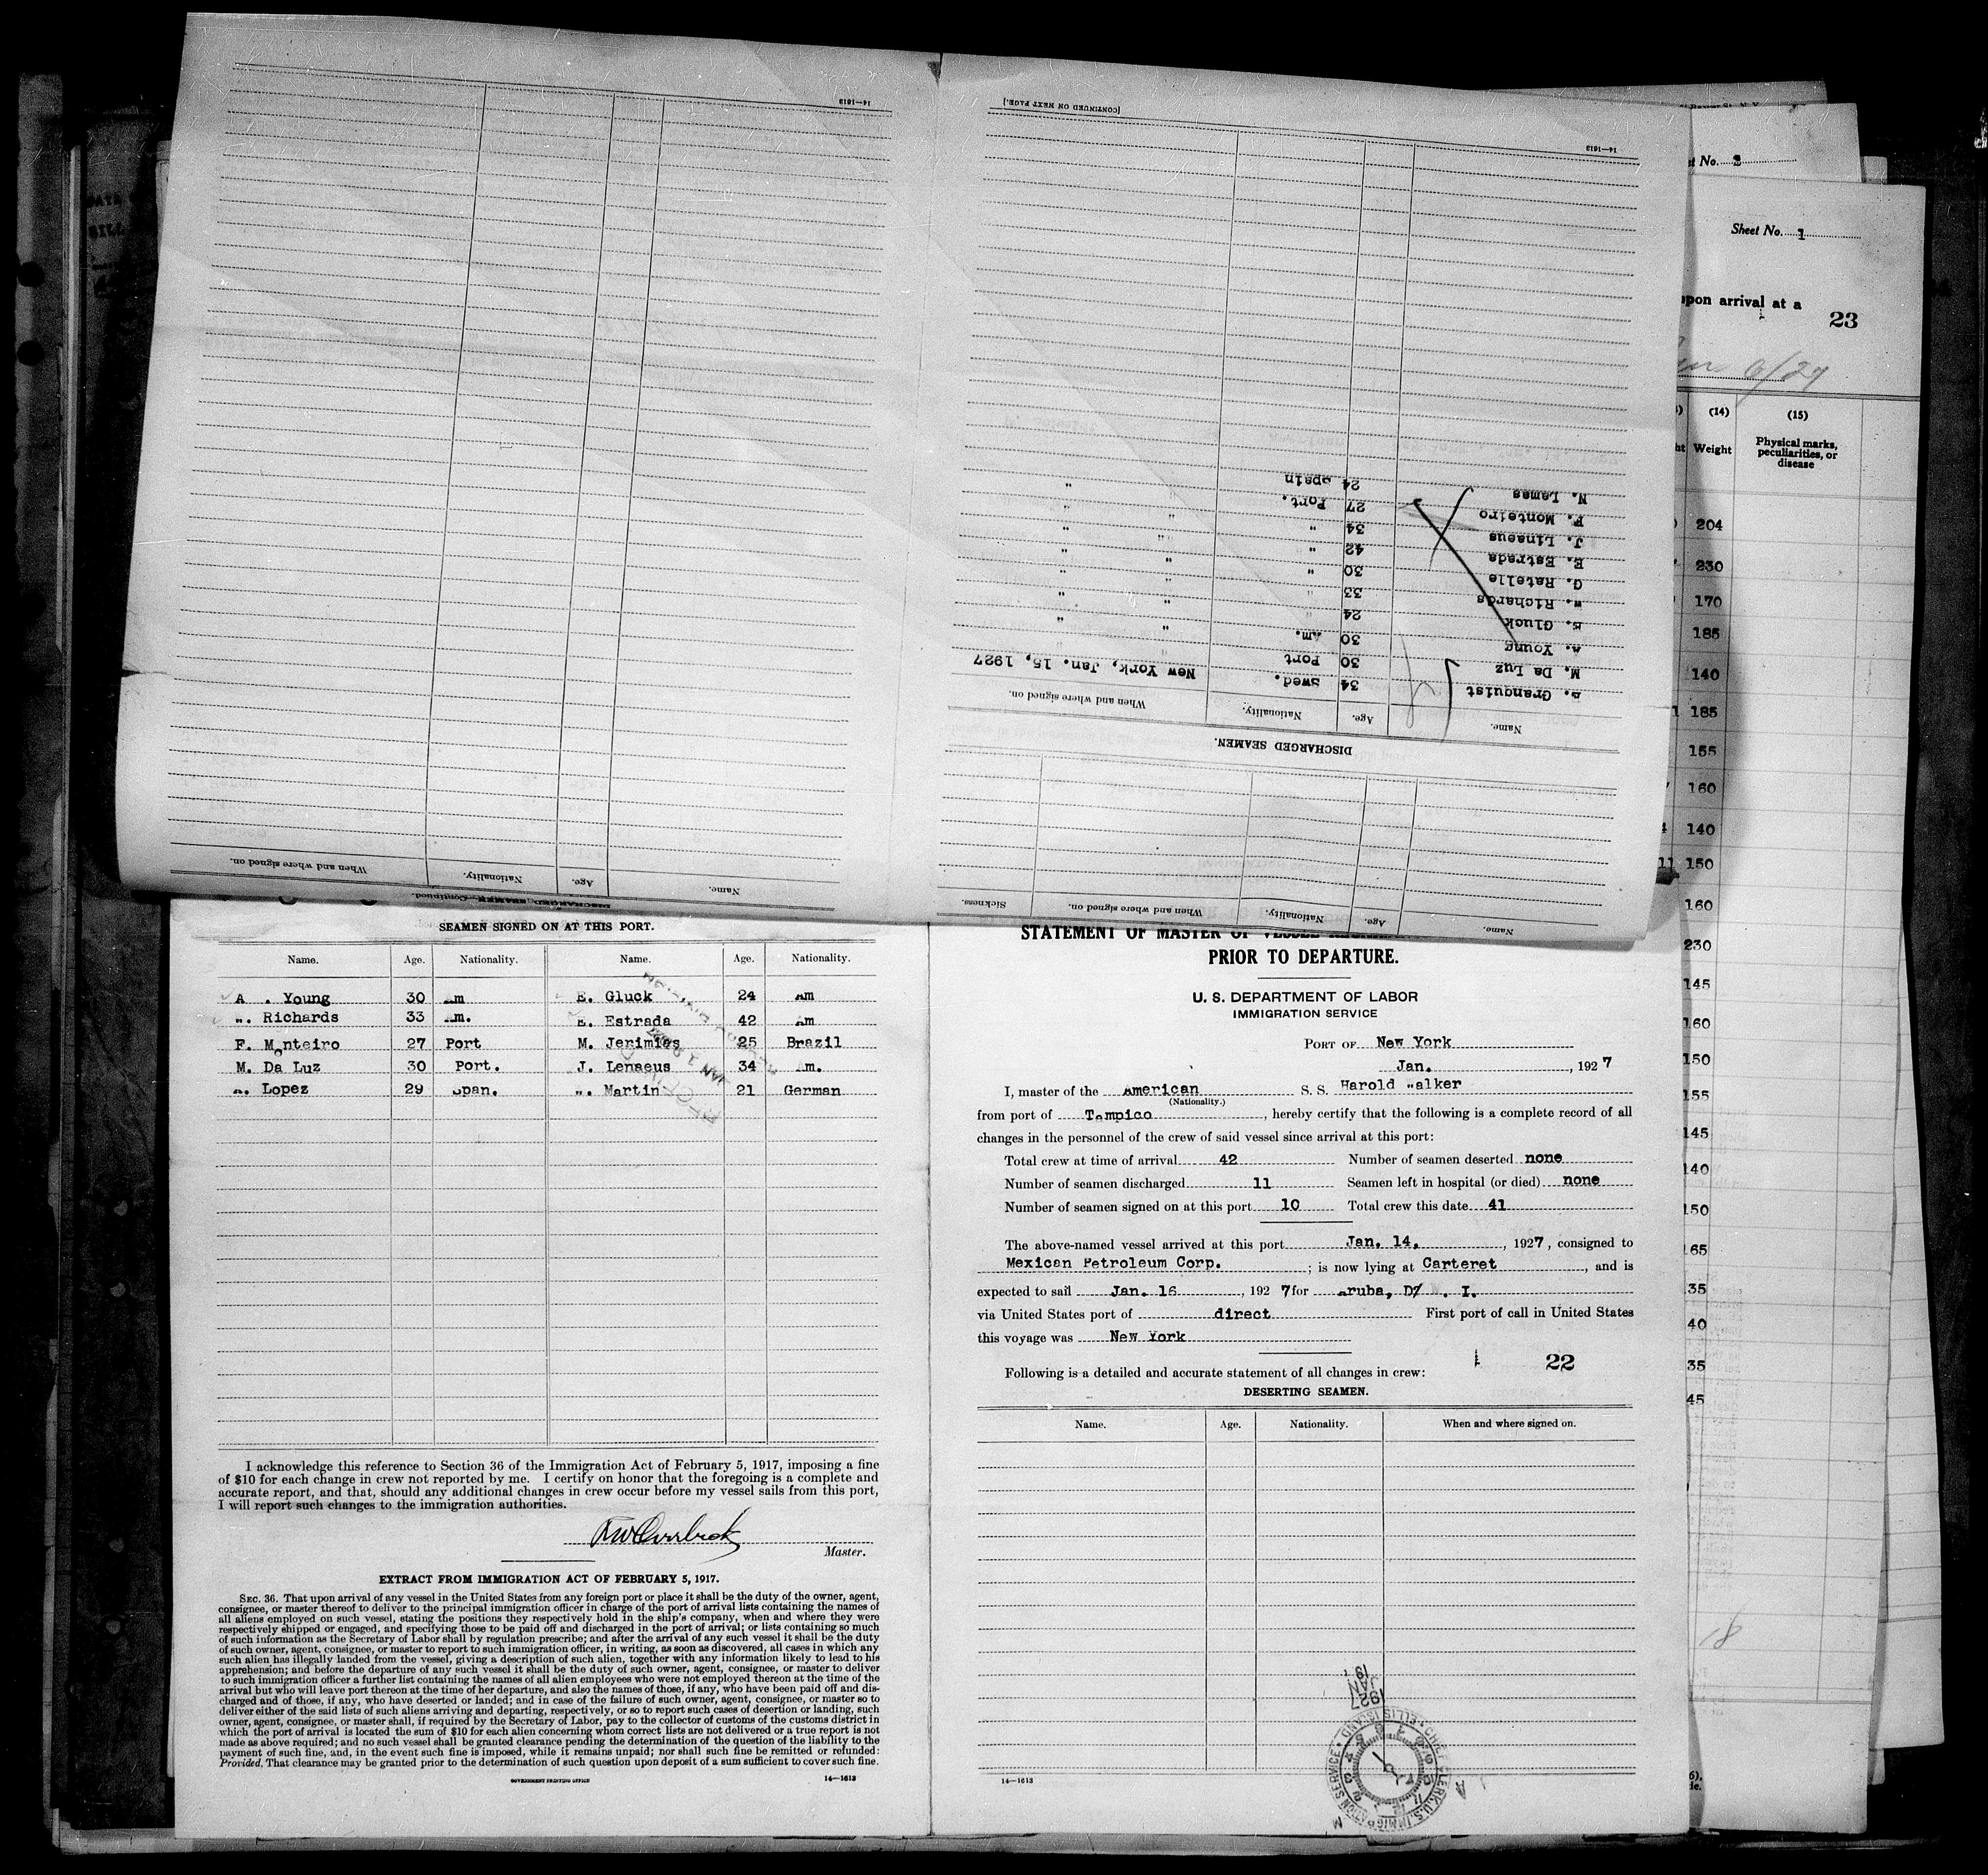 14—1613
[CONTINUED ON NEXT PAGE.]
14—1613
DISCHARGED SEAMEN—Continued.
Name. Age. Nationality. When and where signed on.
Name. Age. Nationality. When and where signed on. Sickness
DISCHARGED SEAMEN.
Name. Age. Nationality. When and where signed on.
Granquist 34 Swed. New York, Jan. 15, 1927
M. Da Luz 30 Port " "
Young 30 Am. " "
Gluck 24 " " "
W. Richards 33 " "
G. Ratelle 30 " " "
E. Estrada 42 " " "
J. Linaeus 34 " " "
F. Monteiro 27 Port. " "
N. Lamas 24 Spain "
Sheet No. 2
Sheet No. 1
upon arrival at a
23
(14) (15)
Weight
Physical marks,
peculiarities, or
disease
204
230
170
185
140
185
155
160
140
150
160
230
145
160
150
155
145
140
150
65
35
40
35
45
18
SEAMEN SIGNED ON AT THIS PORT.
Name. Age. Nationality. Name. Age. Nationality.
A . Young 30 Am E. Gluck 24 Am
W. Richards 33 Am. E. Estrada 42 Am
F. Monteiro 27 Port M. Jerimies 25 Brazil
M. Da Luz 30 Port. J. Lenaeus 34 Am.
A. Lopez 29 Span. W. Martin 21 German
I acknowledge this reference to Section 36 of the Immigration Act of February 5, 1917, imposing a fine
of $10 for each change in crew not reported by me. I certify on honor that the foregoing is a complete and
accurate report, and that, should any additional changes in crew occur before my vessel sails from this port,
I will report such changes to the immigration authorities.
Master.
EXTRACT FROM IMMIGRATION ACT OF FEBRUARY 5, 1917.
SEC. 36. That upon arrival of any vessel in the United States from any foreign port or place it shall be the duty of the owner, agent,
consignee, or master thereof to deliver to the principal immigration officer in charge of the port of arrival lists containing the names of
all aliens employed on such vessel, stating the positions they respectively hold in the ship's company, when and where they were
respectively shipped or engaged, and specifying those to be paid off and discharged in the port of arrival; or lists containing so much
of such information as the Secretary of Labor shall by regulation prescribe; and after the arrival of any such vessel it shall be the duty
of such owner, agent, consignee, or master to report to such immigration officer, in writing, as soon as discovered, all cases in which any
such alien has illegally landed from the vessel, giving a description of such alien, together with any information likely to lead to his
apprehension; and before the departure of any such vessel it shall be the duty of such owner, agent, consignee, or master to deliver
to such immigration officer a further list containing the names of all alien employees who were not employed thereon at the time of the
arrival but who will leave port thereon at the time of her departure, and also the names of those, if any, who have been paid off and dis-
charged and of those, if any, who have deserted or landed; and in case of the failure of such owner, agent, consignee, or master so to
deliver either of the said lists of such aliens arriving and departing, respectively, or so to report such cases of desertion or landing, such
owner, agent, consignee, or master shall, if required by the Secretary of Labor, pay to the collector of customs of the customs district in
which the port of arrival is located the sum of $10 for each alien concerning whom correct lists are not delivered or a true report is not
made as above required; and no such vessel shall be granted clearance pending the determination of the question of the liability to the
payment of such fine, and, in the event such fine is imposed, while it remains unpaid; nor shall such fine be remitted or refunded:
Provided, That clearance may be granted prior to the determination of such question upon deposit of a sum sufficient to cover such fine.
GOVERNMENT PRINTING OFFICE 14—1613
STATEMENT OF MASTER OF VESSEL
PRIOR TO DEPARTURE.
U. S. DEPARTMENT OF LABOR
IMMIGRATION SERVICE
PORT OF New York
Jan. , 1927
I, master of the American S. S. Harold Walker
(Nationality.)
from port of Tampico, hereby certify that the following is a complete record of all
changes in the personnel of the crew of said vessel since arrival at this port:
Total crew at time of arrival 42 Number of seamen deserted none
Number of seamen discharged 11 Seamen left in hospital (or died) none
Number of seamen signed on at this port 10 Total crew this date 41
The above-named vessel arrived at this port Jan. 14. , 1927, consigned to
Mexican Petroleum Corp. ; is now lying at Carteret , and is
expected to sail Jan. 16 , 1927 for Aruba, D . I.
via United States port of direct First port of call in United States
this voyage was New York
22
Following is a detailed and accurate statement of all changes in crew:
DESERTING SEAMEN.
Name. Age. Nationality. When and where signed on.
14—1613
1927
JAN
19
CHIEF CLERK, U.S. IMMIGRATION SERVICE • ELLIS ISLAND •